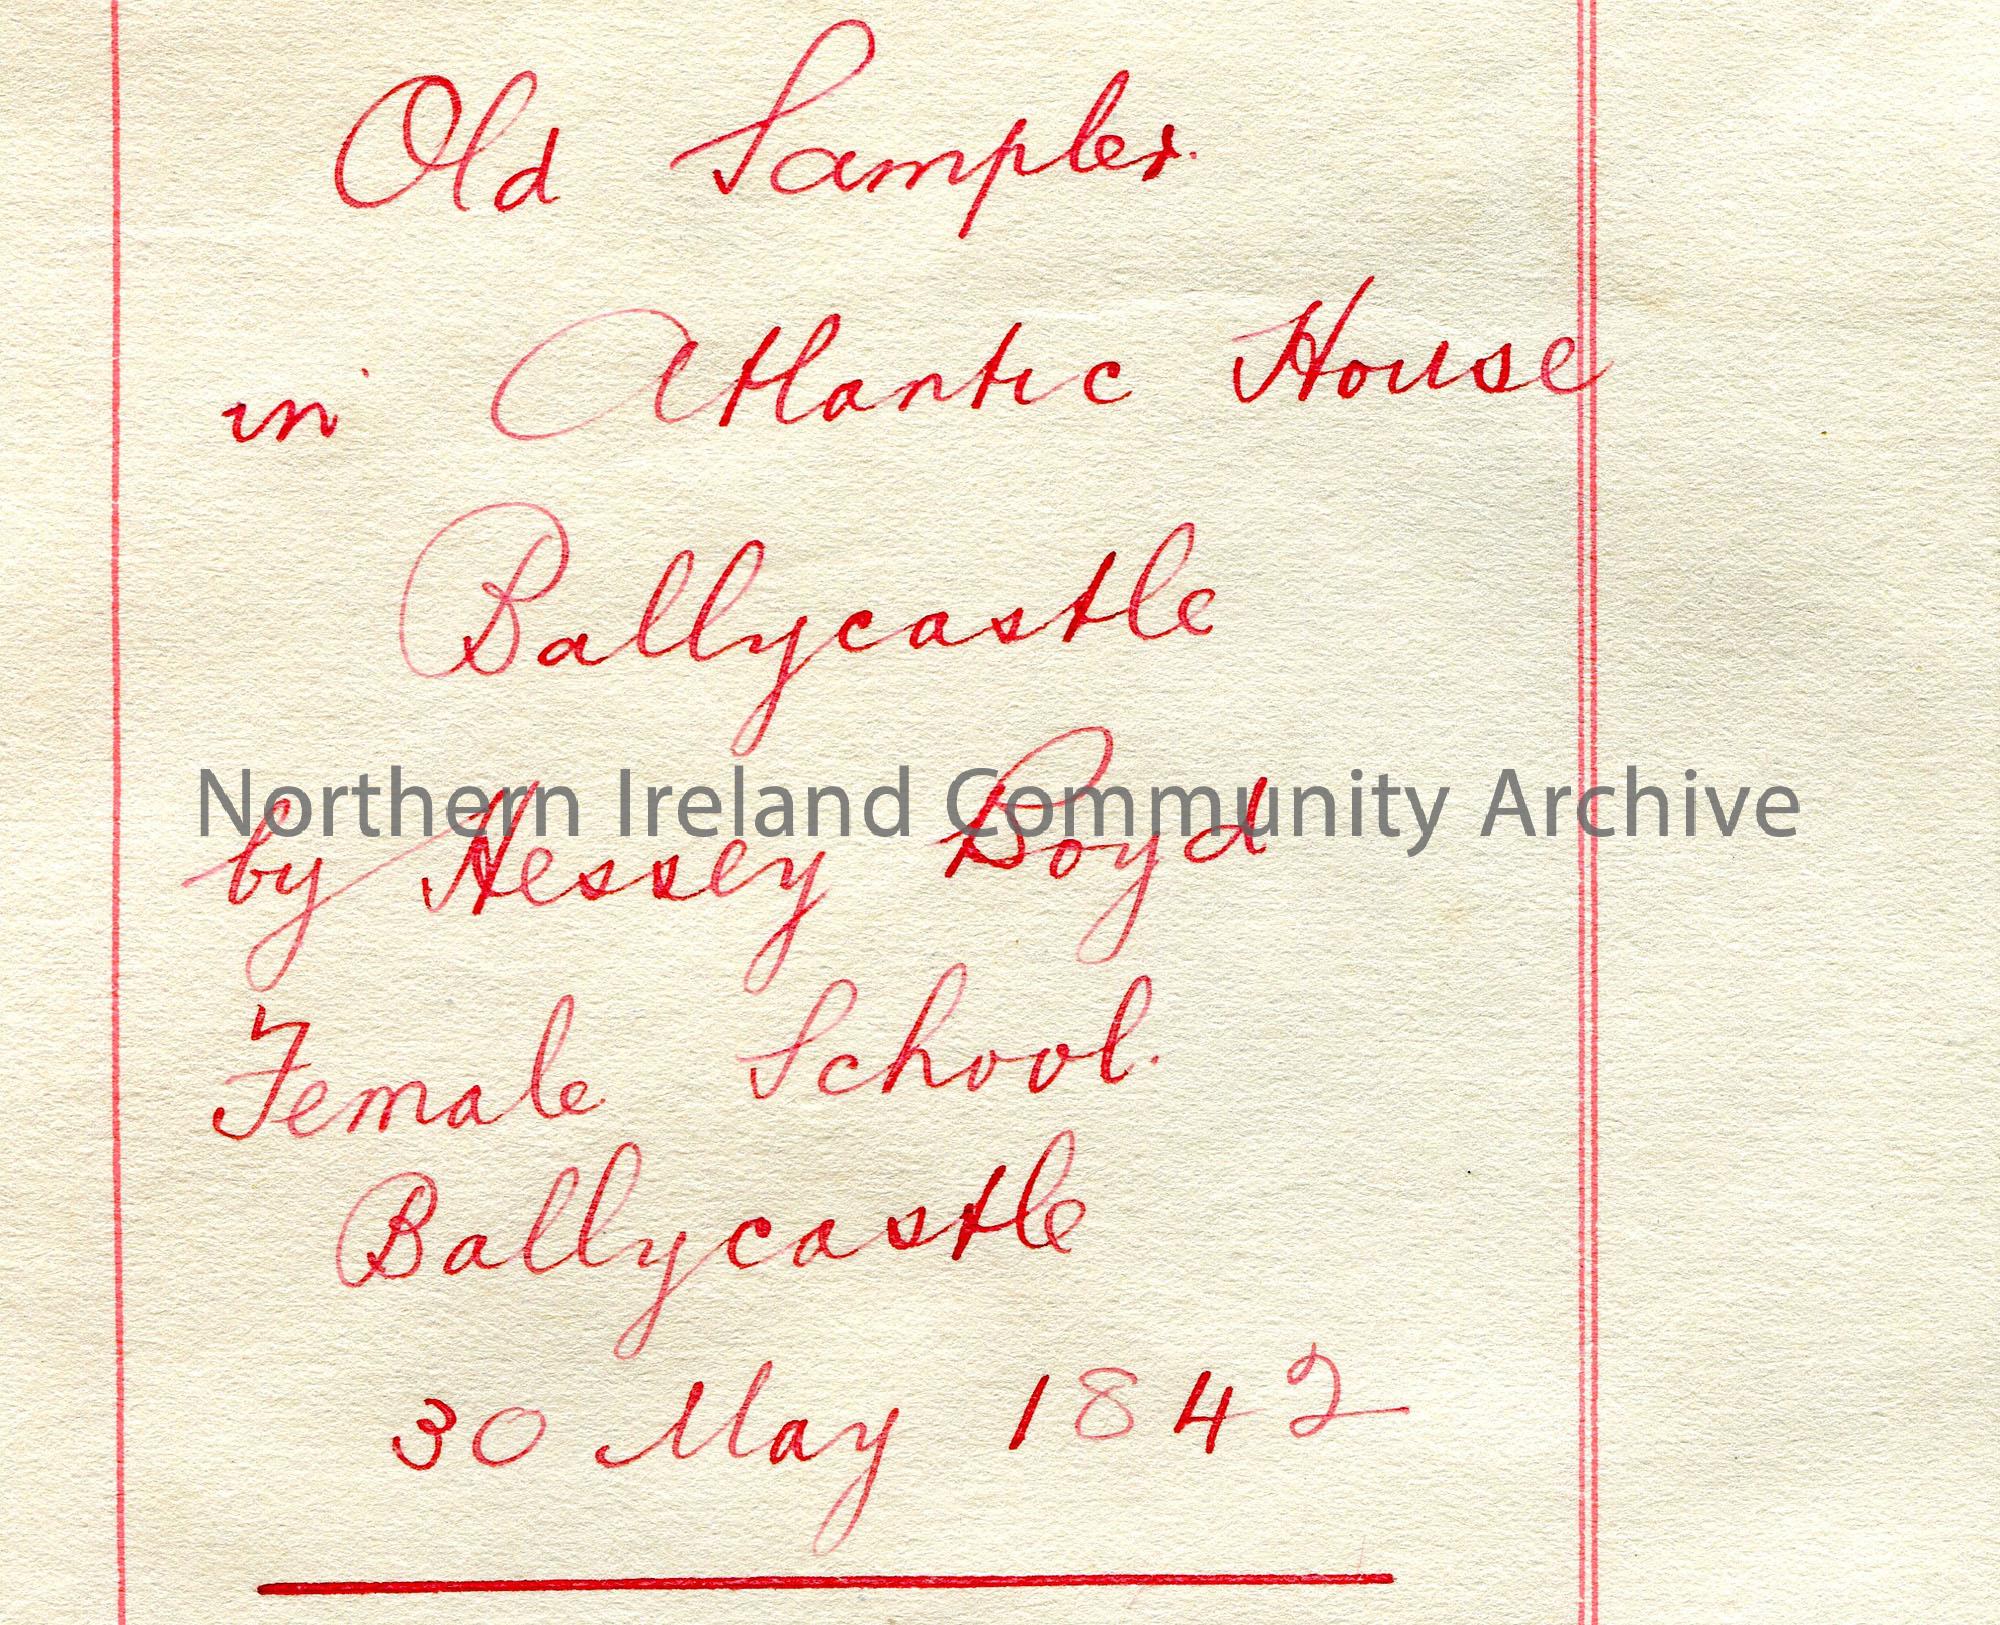 Old Sampler.
in Atlantic House
Ballycastle
Northern Ireland Community Archive
by Hessey Boyd
Female School.
Ballycastle
30 May 1842